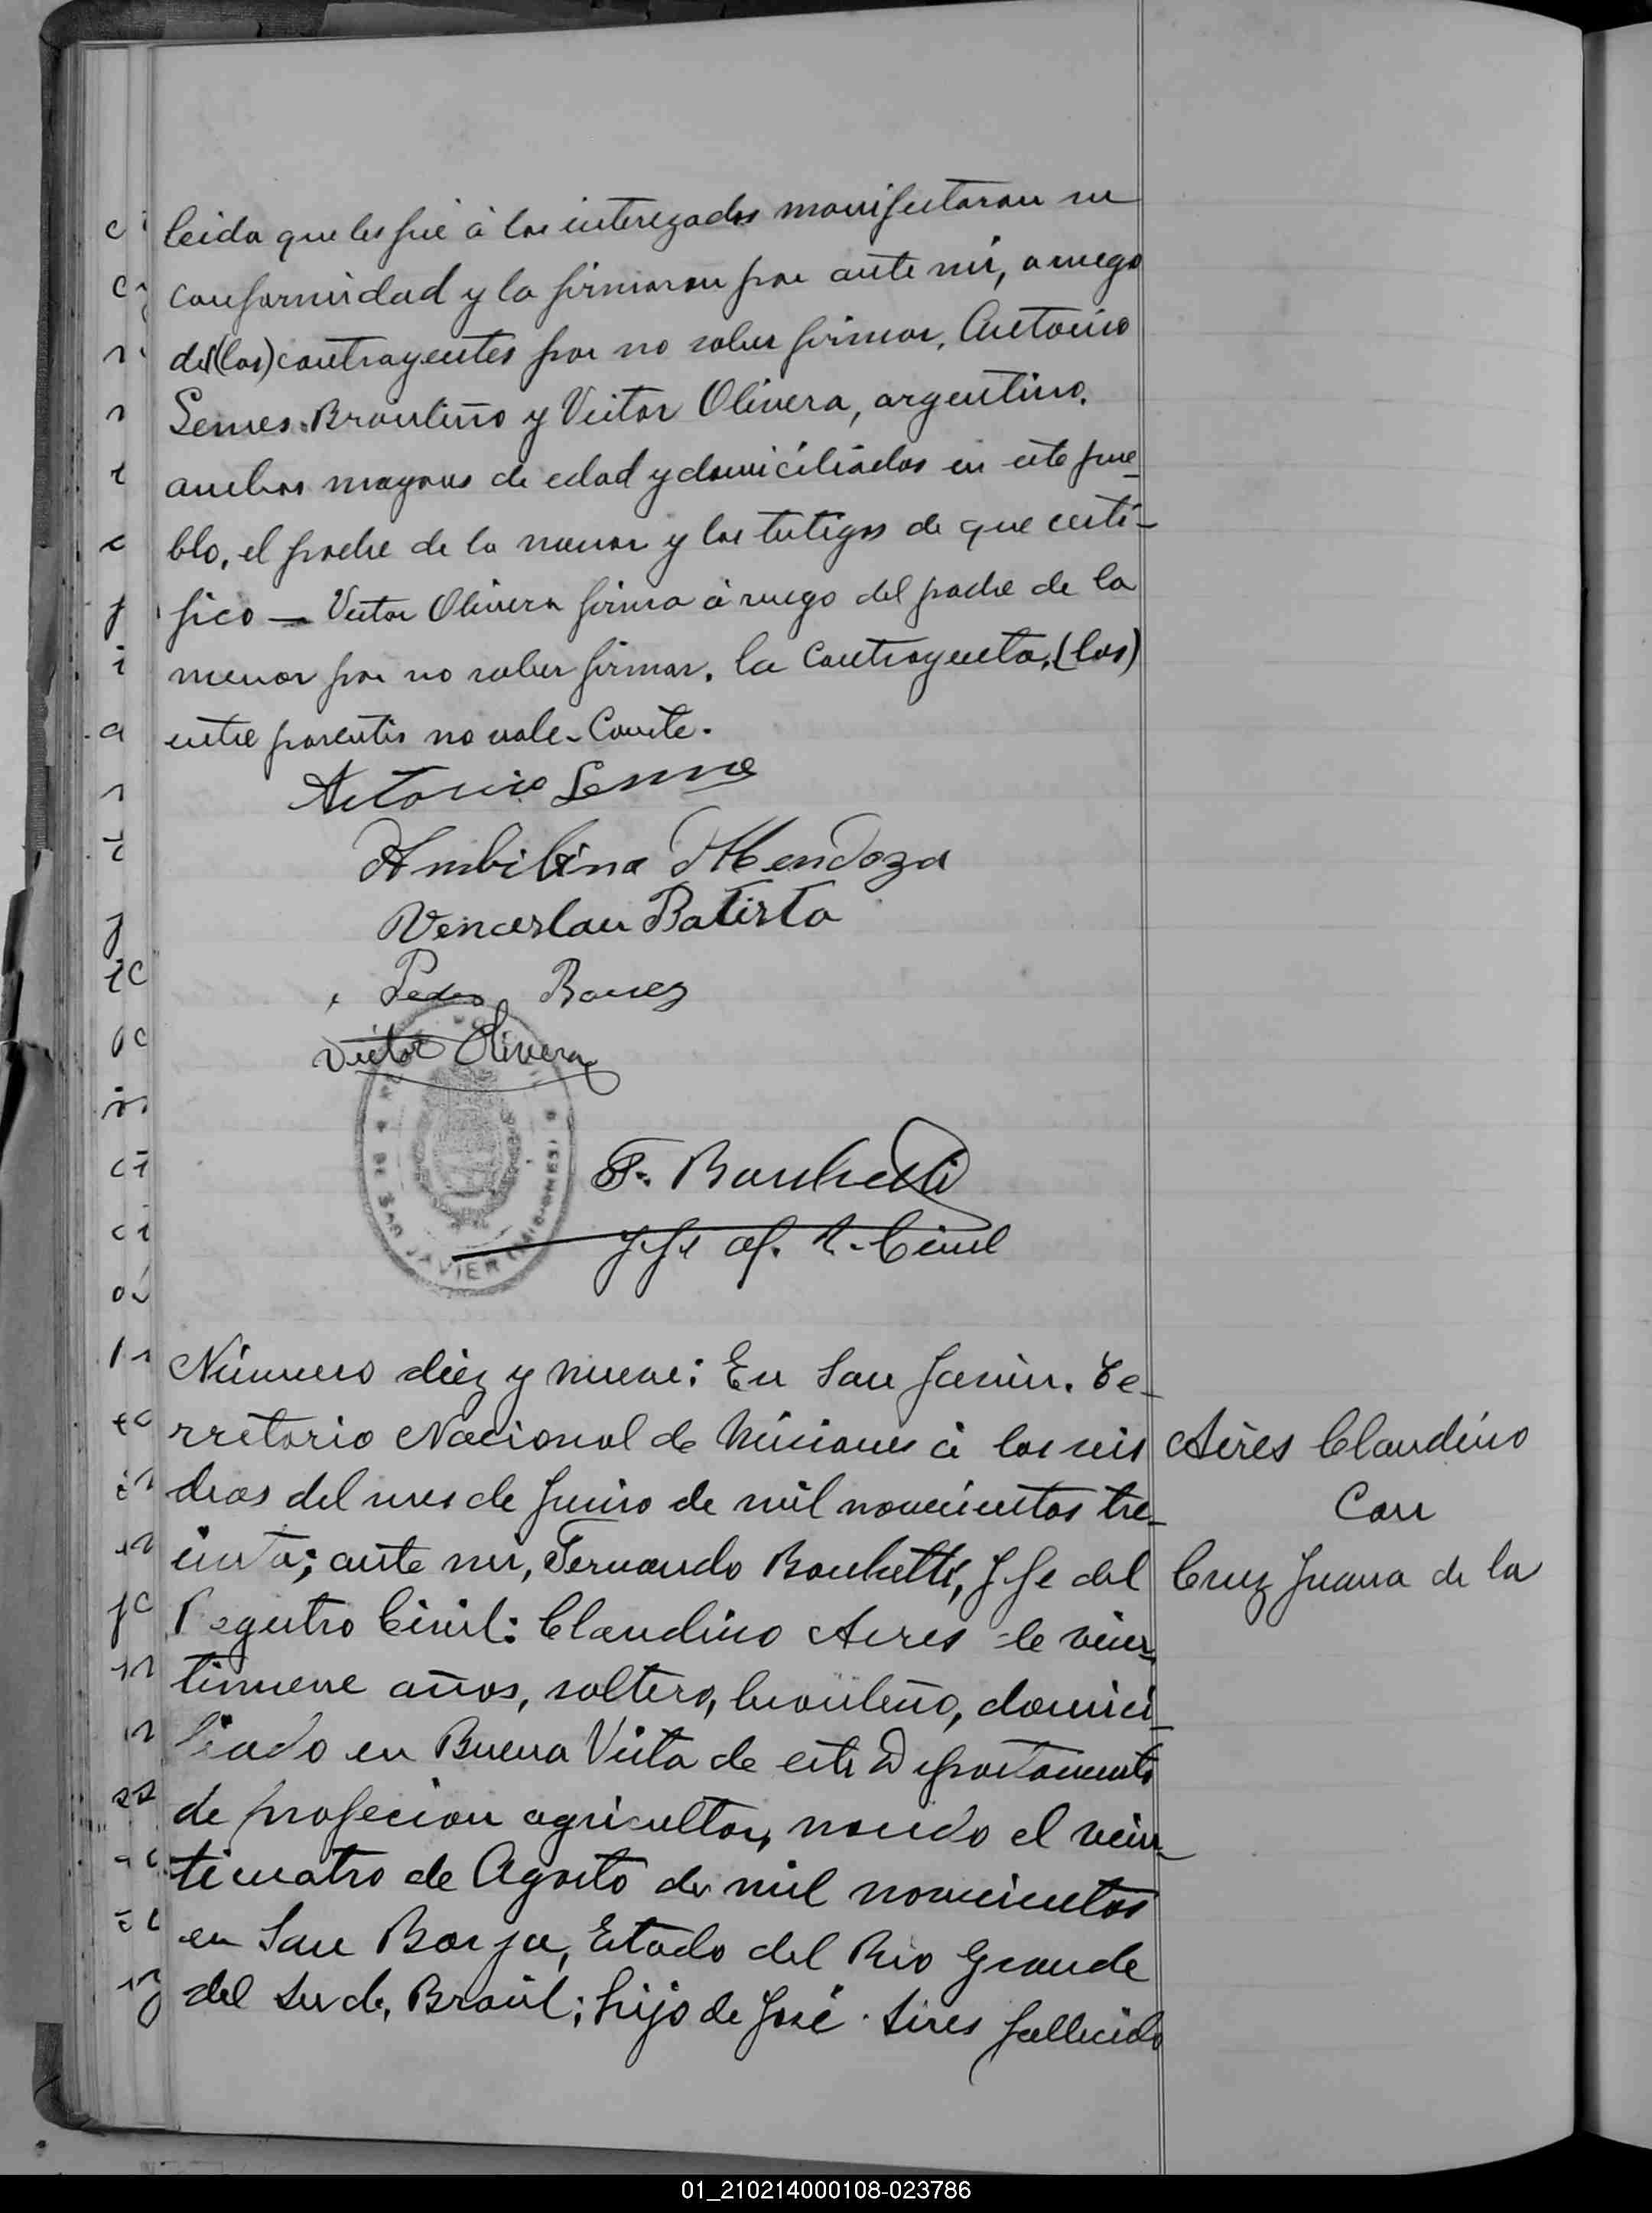 leida que les fué á los interezados manifestaron su
conformidad y la firmaron por ante mi, a ruego
del (los) contrayentes por no saber firmar, Antonio
Lemes. Brasileño y Victor Olivera, argentino.
ambos mayores de edad y domiciliados en este pue-
blo, el padre de la menor y los testigos de que certi-
fico — Victor Olivera firma á ruego del padre de la
menor por no saber firmar. la contrayenta, (los)
entre parentis no vale. Conste.
Antonio Leme
Ambilina Mendoza
Venceslau Batista
Pedro
Victor Olivera
DE SAN JAVIER (MISIONES)
F. Bonchetti
Jefe of. R. Civil
Número diez y nueve: En San Javier. Te-
rretorio Nacional de Misiones á los seis
Aires Claudino
dias del mes de Junio de mil novecientos tre-
Con
inta; ante mi, Fernando Bonchetti, Jefe del
Cruz Juana de la
Registro Civil: Claudino Aires de vein-
tinueve años, soltero, brasileño, domici-
liado en Buena Vista de este Departamento
de profecion agricultor, nacido el vein-
ticuatro de Agosto de mil novecientos
en San Borja, Estado del Rio Grande
del Sud, Brasil; hijo de José Aires fallecido
01_210214000108-023786